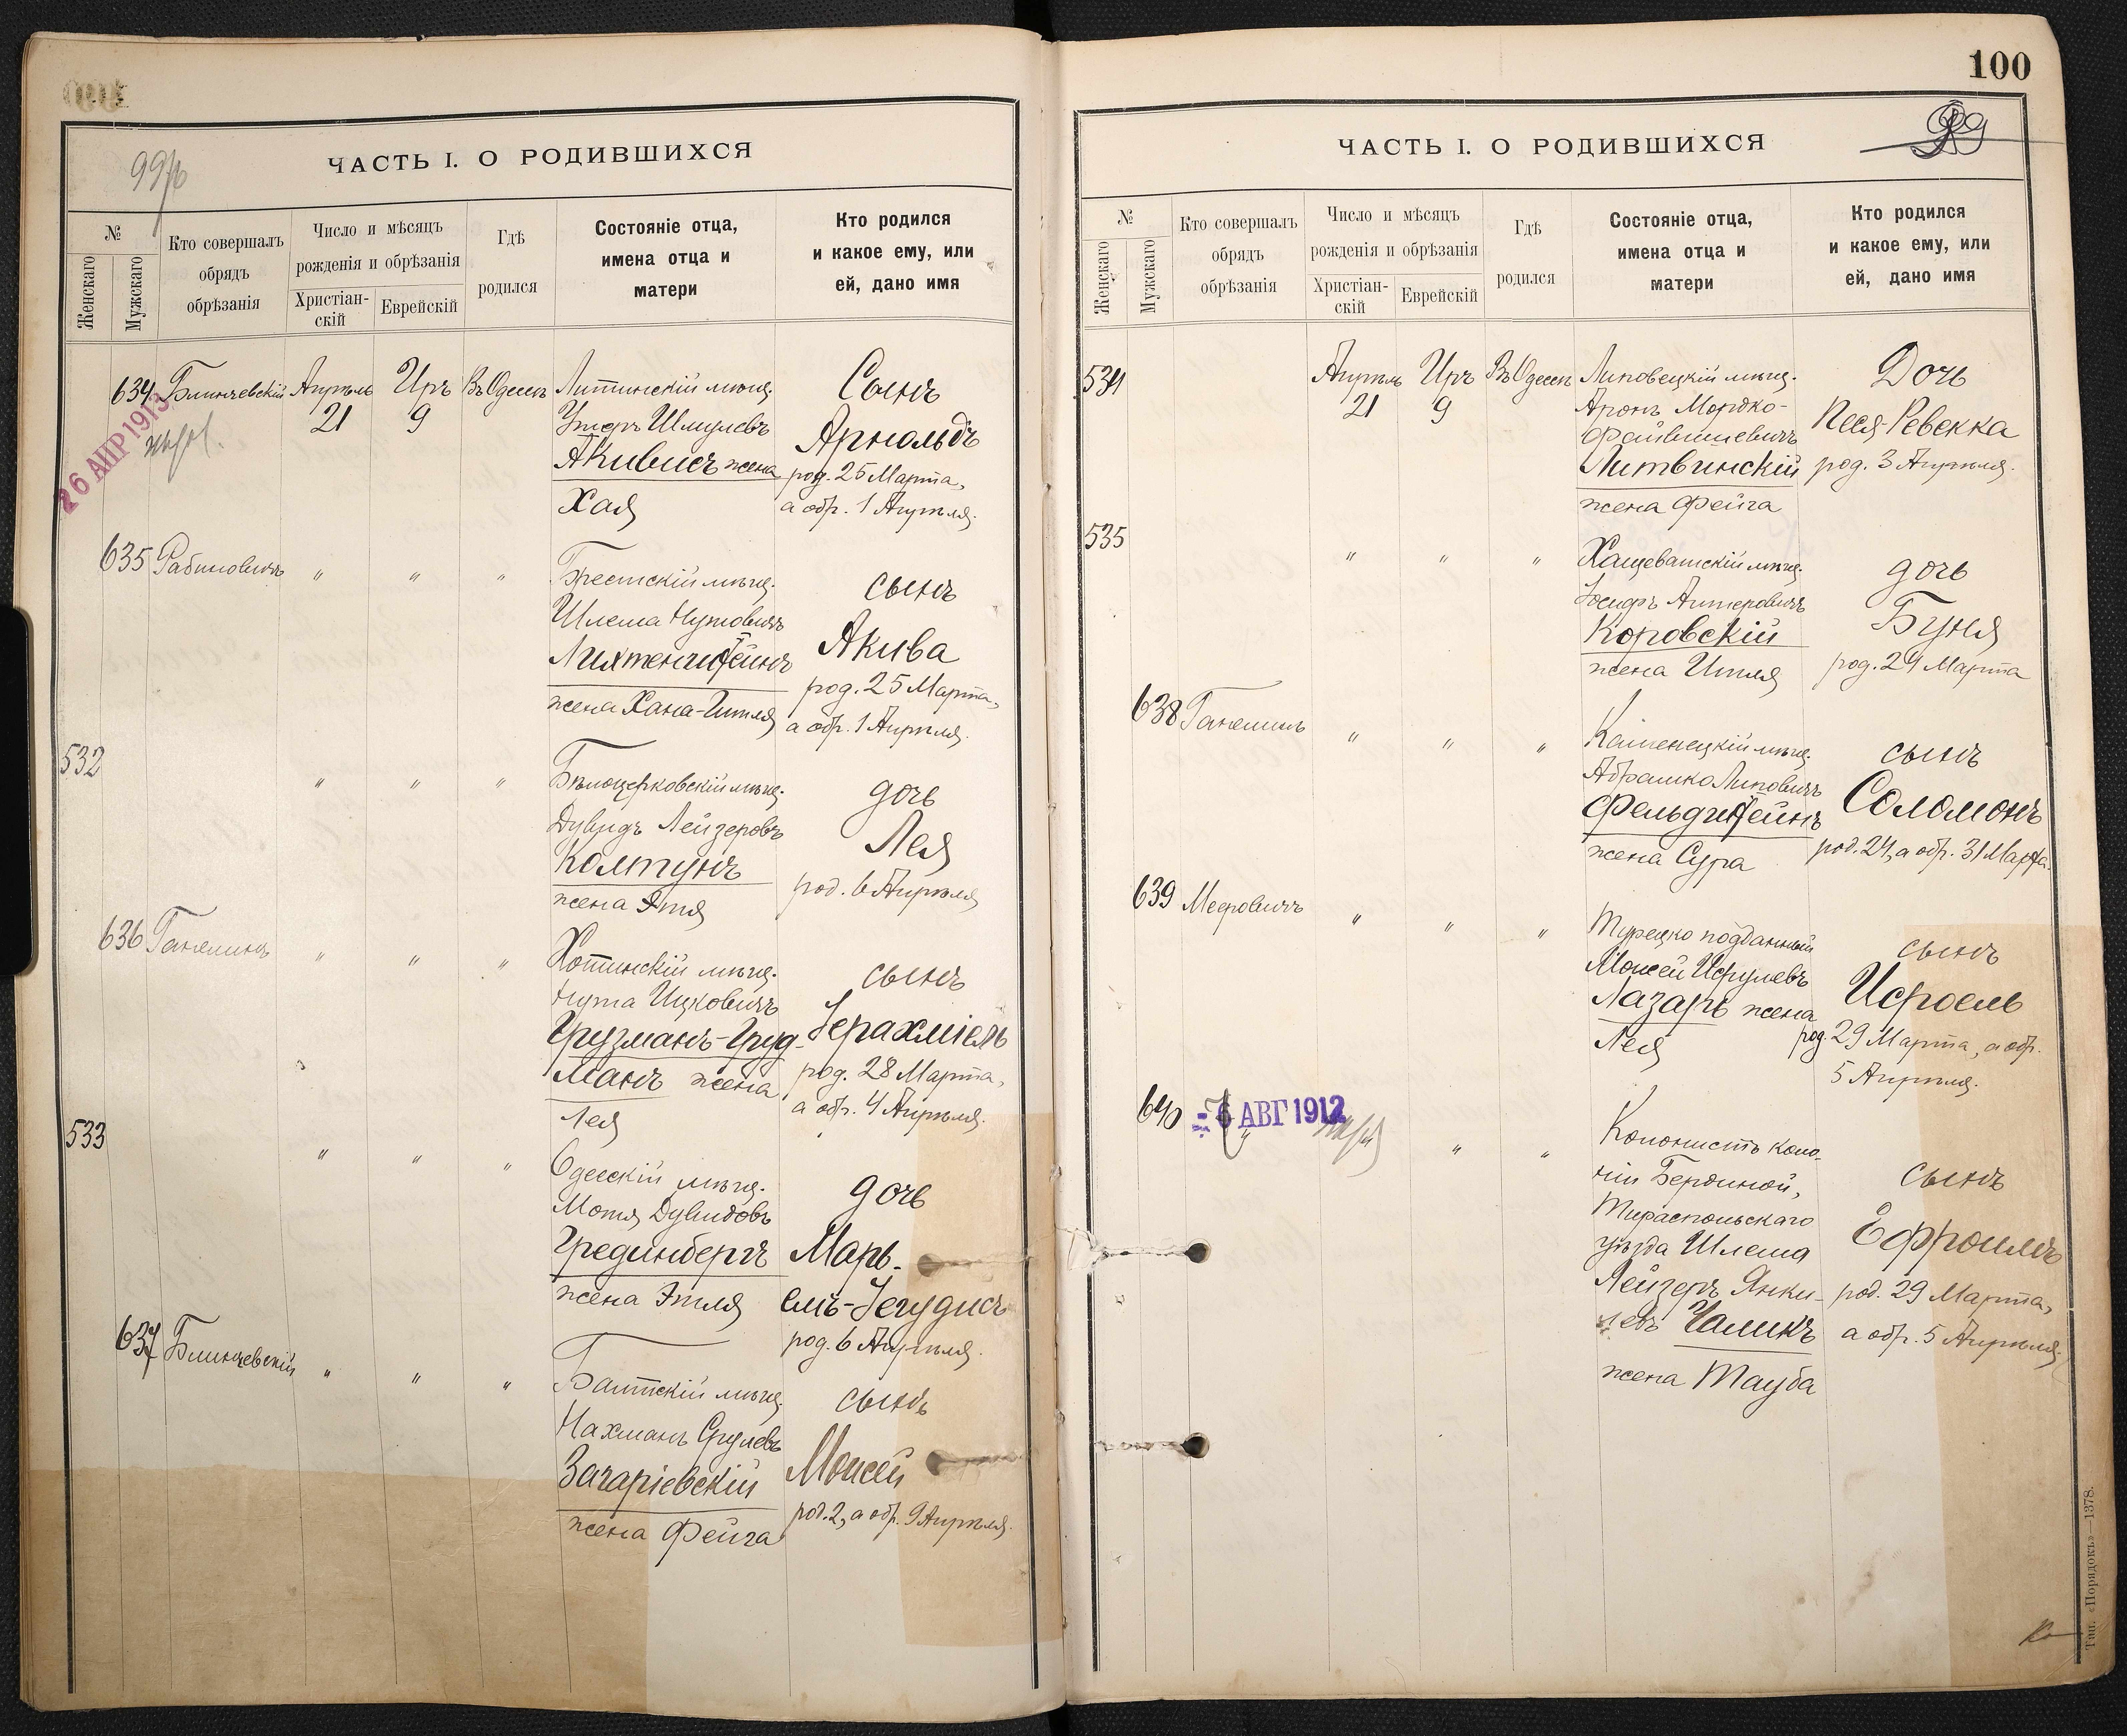 100
99
99об
ЧАСТЬ I. О РОДИВШИХСЯ
№
Женскаго
Мужскаго
Кто совершалъ
обрядъ
обрѣзанія
Число и мѣсяцъ
рожденія и обрѣзанія
Христіан-
скій
Еврейскій
Гдѣ
родился
Состояніе отца,
имена отца и
матери
Кто родился
и какое ему, или
ей, дано имя
634 Блинчевскій Апрѣль 21 Иръ 9 Въ Одессѣ
26 АПР 1913
Литинскій мѣщ.
Умеръ Шмулевъ
Акивисъ жена
Хая
Сынъ
Арнольдъ
род. 25 Марта,
а обр. 1 Апрѣля.
635 Рабиновичъ " " "
Брестскій мѣщ.
Шлема Нутовичъ
Лихтенштейнъ
жена Хана-Гитля
сынъ
Акива
род. 25 Марта,
а обр. 1 Апрѣля.
532 " " "
Бѣлоцерковскій мѣщ.
Дувидъ Лейзеровъ
Колтунъ
жена Этя
дочь
Лея
род. 6 Апрѣля
636 Ганелинъ " " "
Хотинскій мѣщ.
Нута Ицковичъ
Грузманъ-Груд-
манъ жена
Лея
сынъ
Іерахміель
род. 28 Марта,
а обр. 4 Апрѣля.
533 " " "
Одесскій мѣщ.
Мотя Дувидовъ
Грединбергъ
жена Этля
дочь
Марь-
емъ-Іегудисъ
род. 6 Апрѣля.
637 Блинчевскій " " "
Балтскій мѣщ.
Нахманъ Срулевъ
Загаріевскій
жена Фейга
сынъ
Моисей
род. 2, а обр. 9 Апрѣля.
ЧАСТЬ I. О РОДИВШИХСЯ
№
Женскаго
Мужскаго
Кто совершалъ
обрядъ
обрѣзанія
Число и мѣсяцъ
рожденія и обрѣзанія
Христіан-
скій
Еврейскій
Гдѣ
родился
Состояніе отца,
имена отца и
матери
Кто родился
и какое ему, или
ей, дано имя
534 Апрѣль 21 Иръ 9 Въ Одессѣ
Липовецкій мѣщ.
Аронъ Мордко-
Файвишевичъ
Литвинскій
жена Фейга
Дочь
Песя-Ревекка
род. 3 Апрѣля.
535 " " "
Хащеватскій мѣщ.
Іосифъ Антеровичъ
Коровскій
жена Итля
дочь
Буня
род. 24 Марта
638 Ганелинъ " " "
Каменецкій мѣщ.
Абрашко Липовичъ
Фельдштейнъ
жена Сура
сынъ
Соломонъ
род. 24, а обр. 31 Марта.
639 Мееровичъ " " "
Турецко подданный
Моисей Исрулевъ
Лазаръ жена
Лея
сынъ
Исроель
род. 29 Марта, а обр.
5 Апрѣля.
640 " " "
6 АВГ 1912
Колонистъ коло-
ніи Бердиной,
Тираспольскаго
уѣзда Шлема
Лейзеръ Янки-
левъ Чаликъ
жена Тауба
сынъ
Ефроимъ
род. 29 Марта,
а обр. 5 Апрѣля.
Тип. «Порядокъ»—1378.